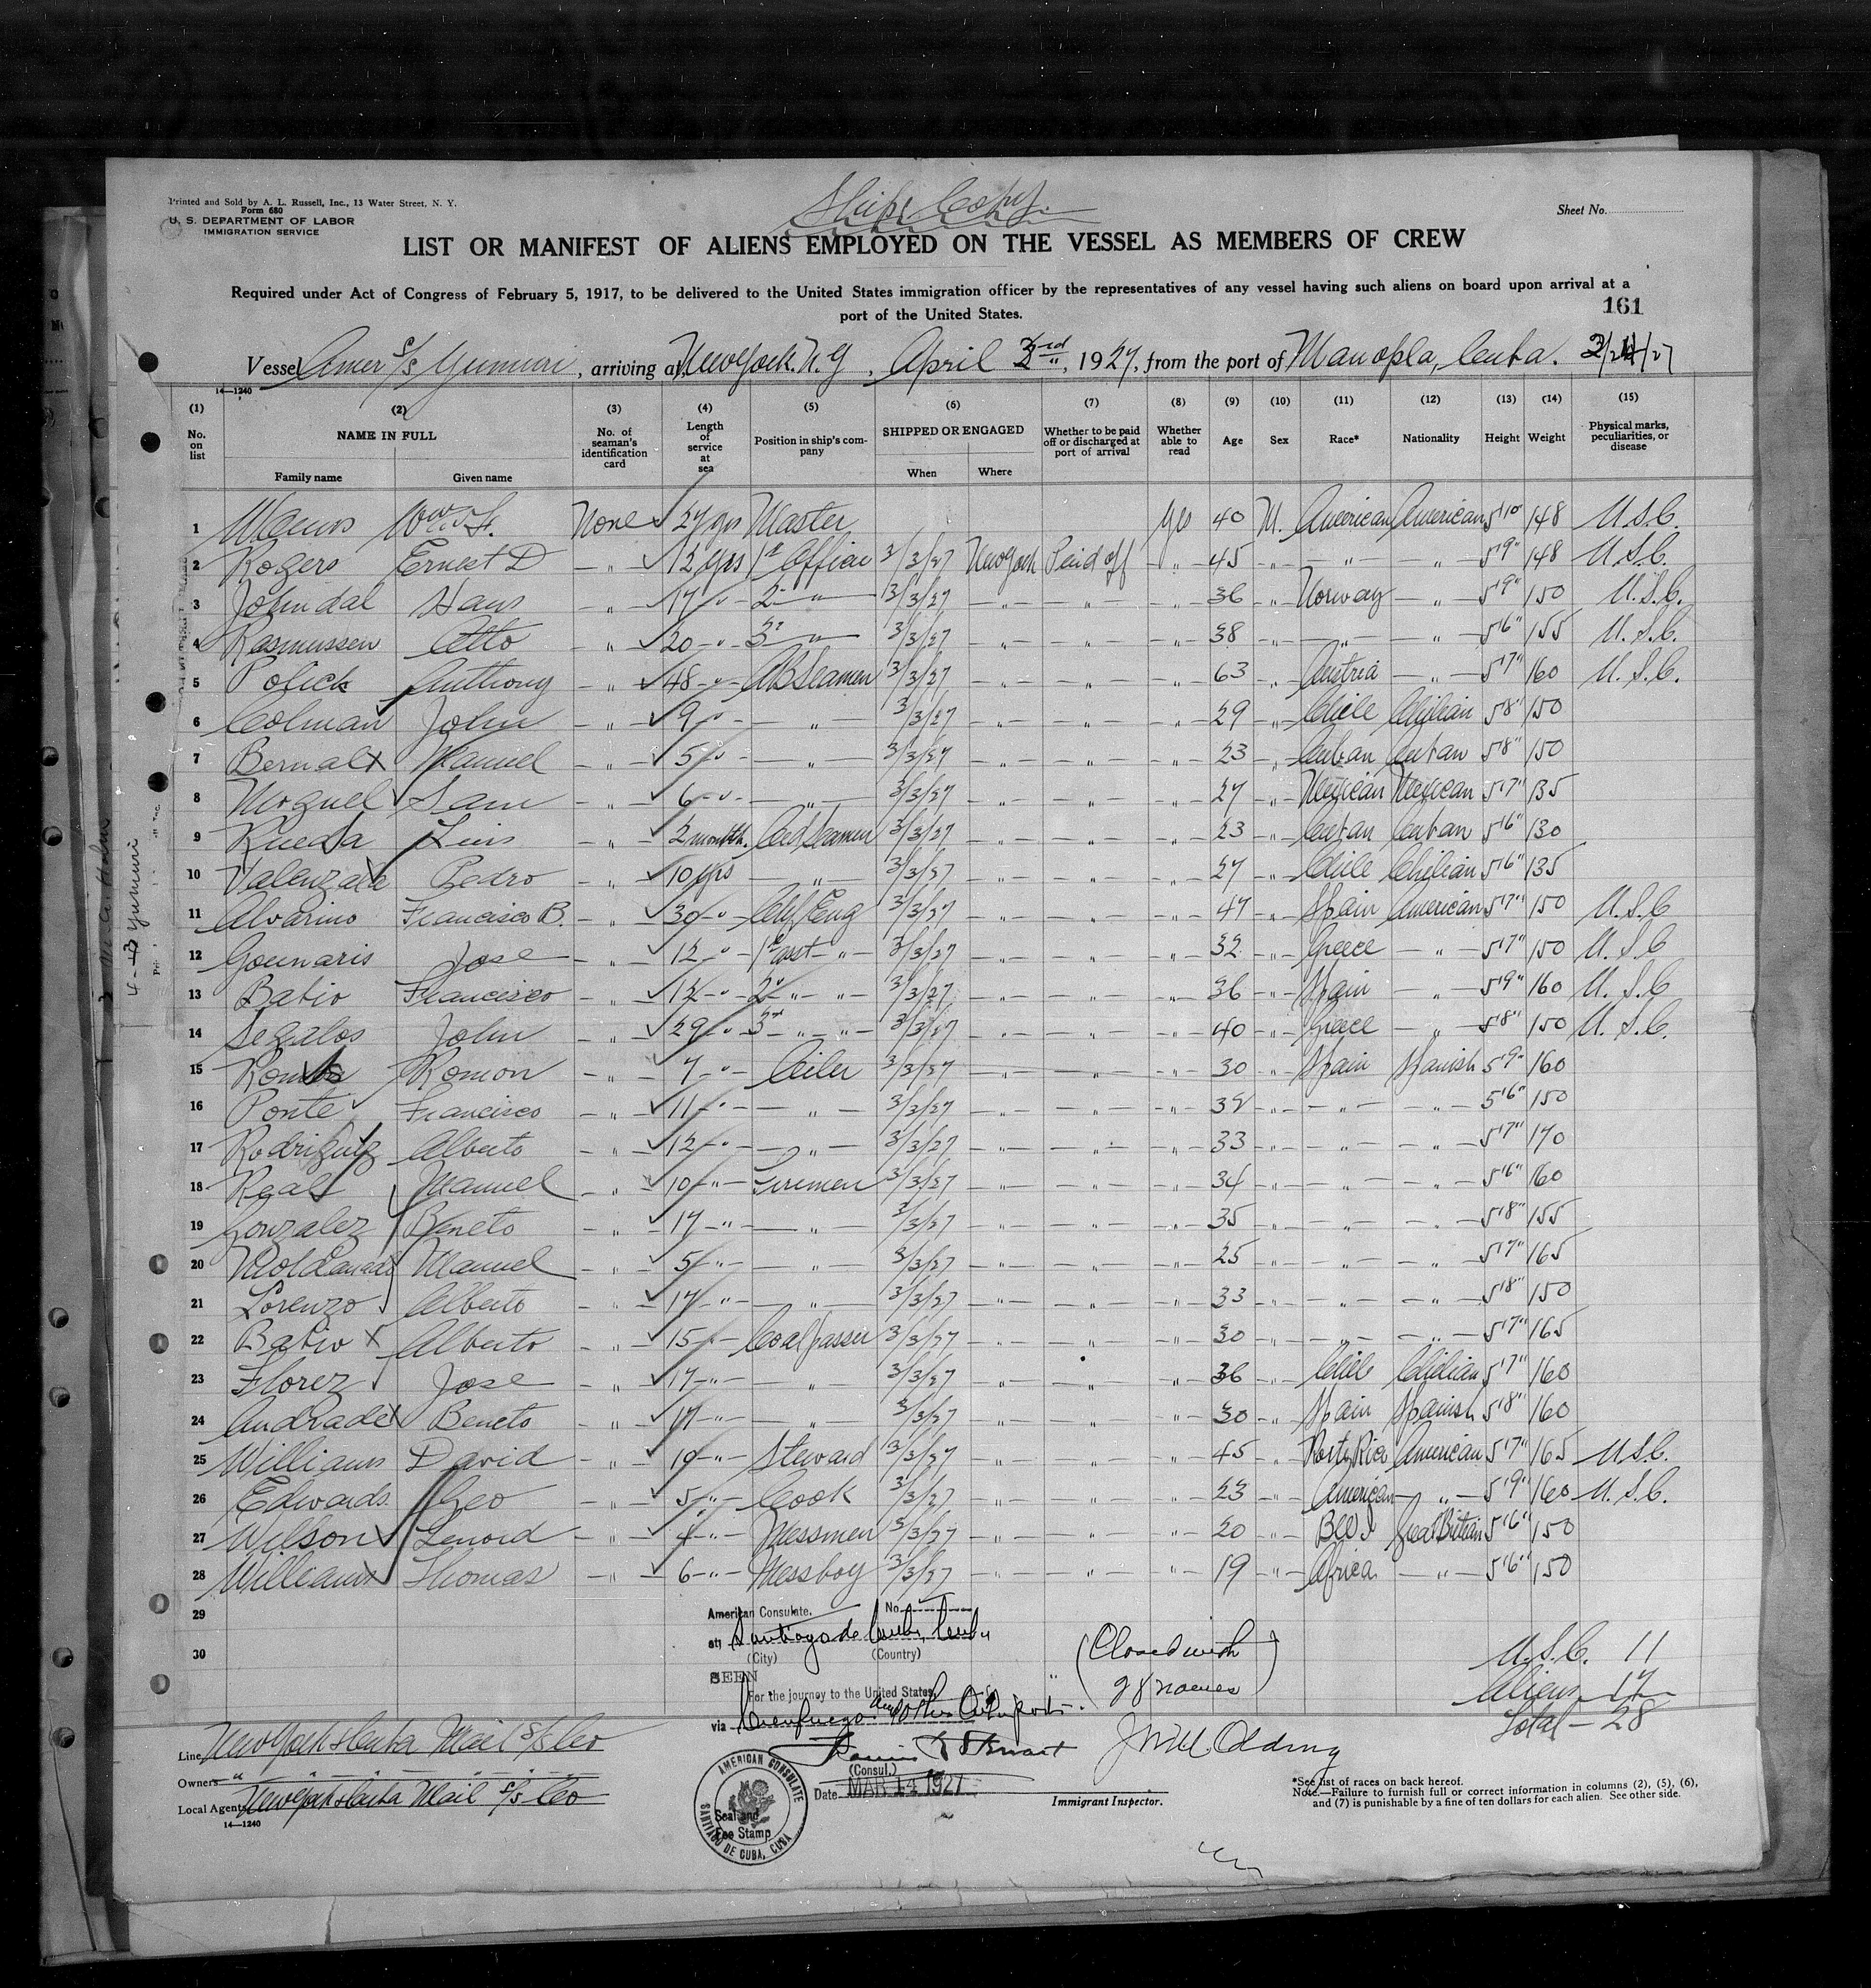 Ships Copy.
Printed and Sold by A. L. Russell, Inc., 13 Water Street, N. Y.
Form 680
U. S. DEPARTMENT OF LABOR
IMMIGRATION SERVICE
Sheet No.
LIST OR MANIFEST OF ALIENS EMPLOYED ON THE VESSEL AS MEMBERS OF CREW
Required under Act of Congress of February 5, 1917, to be delivered to the United States immigration officer by the representatives of any vessel having such aliens on board upon arrival at a
port of the United States.
161
Vessel Amer S/S Yumuri, arriving at New York. N.Y, April 3rd, 1927, from the port of Manopla, Cuba.
14—1240
(1) (2) (3) (4) (5) (6) (7) (8) (9) (10) (11) (12) (13) (14) (15)
No. on list NAME IN FULL Family name Given name No. of seaman's identification card Length of service at sea Position in ship's company SHIPPED OR ENGAGED When Where Whether to be paid off or discharged at port of arrival Whether able to read Age Sex Race* Nationality Height Weight Physical marks, peculiarities, or disease
1 Wm. None 27 yrs Master Yes 40 M. American American 5'10 148 U.S.C.
2 Rogers Ernest D - " - 12 yrs 1st Officer 3/3/27 New York Paid off - " - 45 - " - - " - - " - 5'9" 148 U.S.C.
3 Johndal Hans - " - 17 - " - 2 - " - 3/3/27 - " - - " - - " - 36 - " - Norway - " - 5'9" 150 U.S.C.
4 Rasmussen Otto - " - 20 - " - 3 " 3/3/27 - " - - " - - " - 38 - " - - " - - " - 5'6" 155 U.S.C.
5 Polick Anthony - " - 48 - " - AB Seamen 3/3/27 - " - - " - - " - 63 - " - Austria - " - 5'7" 160 U.S.C.
6 Colman John - " - 9 - " - - " - 3/3/27 - " - - " - - " - 29 - " - Chile Chilian 5'8" 150
7 Bernal x Manuel - " - 5 - " - - " - 3/3/27 - " - - " - - " - 23 - " - Cuban Cuban 5'8" 150
8 Moguel Sam - " - 6 - " - - " - 3/3/27 - " - - " - - " - 27 - " - Mexican Mexican 5'7" 135
9 Rueda Luis - " - 2 month. Ord Seamen 3/3/27 - " - - " - - " - 23 - " - Cuban Cuban 5'6" 130
10 Valenzala Pedro - " - 10 yrs - " - 3/3/27 - " - - " - - " - 27 - " - Chile Chilian 5'6" 135
11 Alvarino Francisco B. - " - 30 - " - Chf Eng 3/3/27 - " - - " - - " - 47 - " - Spain American 5'7" 150 U.S.C
12 Gounaris Jose - " - 12 - " - 1st asst - " - 3/3/27 - " - - " - - " - 32 - " - Greece - " - 5'7" 150 U.S.C
13 Batio Francisco - " - 12 - " - 2 - " - - " - 3/3/27 - " - - " - - " - 36 - " - Spain - " - 5'9" 160 U.S.C
14 Segalos John - " - 29 - " - 3 - " - - " - 3/3/27 - " - - " - - " - 40 - " - Greece - " - 5'8" 150 U.S.C.
15 Romon - " - 7 - " - Oiler 3/3/27 - " - - " - - " - 30 - " - Spain Spanish 5'9" 160
16 Ponte Francisco - " - 11 - " - - " - 3/3/27 - " - - " - - " - - " - - " - - " - 5'6" 150
17 Rodriguez Alberto - " - 12 - " - - " - 3/3/27 - " - - " - - " - 33 - " - - " - - " - 5'7" 170
18 Real Manuel - " - 10 - " - Firemen 3/3/27 - " - - " - - " - 34 - " - - " - - " - 5'6" 160
19 Gonzalez Beneto - " - 17 - " - - " - 3/3/27 - " - - " - - " - 35 - " - - " - - " - 5'8" 155
20 Manuel - " - 5 - " - - " - 3/3/27 - " - - " - - " - 25 - " - - " - - " - 5'7" 165
21 Lorenzo Alberto - " - 17 - " - - " - 3/3/27 - " - - " - - " - 33 - " - - " - - " - 5'8" 150
22 Batio x Alberto - " - 15 - " - Coal passer 3/3/27 - " - - " - - " - 30 - " - - " - - " - 5'7" 165
23 Florez Jose - " - 17 - " - " 3/3/27 - " - - " - - " - 36 - " - Chile Chilian 5'7" 160
24 Andrade x Beneto - " - 17 - " - " 3/3/27 - " - - " - - " - 30 - " - Spain Spanish 5'8" 160
25 Williams David - " - 19 - " - Steward 3/3/27 - " - - " - - " - 45 - " - Porto Rico American 5'7" 165 U.S.C.
26 Edwards. Geo - " - 5 - " - Cook 3/3/27 - " - - " - - " - 23 - " - American - " - 5'9" 160 U.S.C.
27 Wilson Lenord - " - 4 - " - Messmen 3/3/27 - " - - " - - " - 20 - " - B.W.I Great Britian 5'6" 150
28 Williams Thomas - " - 6 - " - Messboy 3/3/27 - " - - " - - " - 19 - " - Africa - " - 5'6" 150
29
30
American Consulate. No.
at Santiago de Cuba, Cuba
(City) (Country)
SEEN
For the journey to the United States
via Cienfuegos and other Cuban ports.
(Consul.)
Date MAR 14 1927
AMERICAN CONSULATE
SANTIAGO DE CUBA, CUBA
Seal and
Fee Stamp
(Closed with
28 names)
Immigrant Inspector.
U.S.C. 11
Aliens 17
Total — 28
Line New York & Cuba Mail S/S Co
Owners "
Local Agents New York & Cuba Mail S/S Co
14—1240
*See list of races on back hereof.
Note.—Failure to furnish full or correct information in columns (2), (5), (6),
and (7) is punishable by a fine of ten dollars for each alien. See other side.
4-3 Yumuri